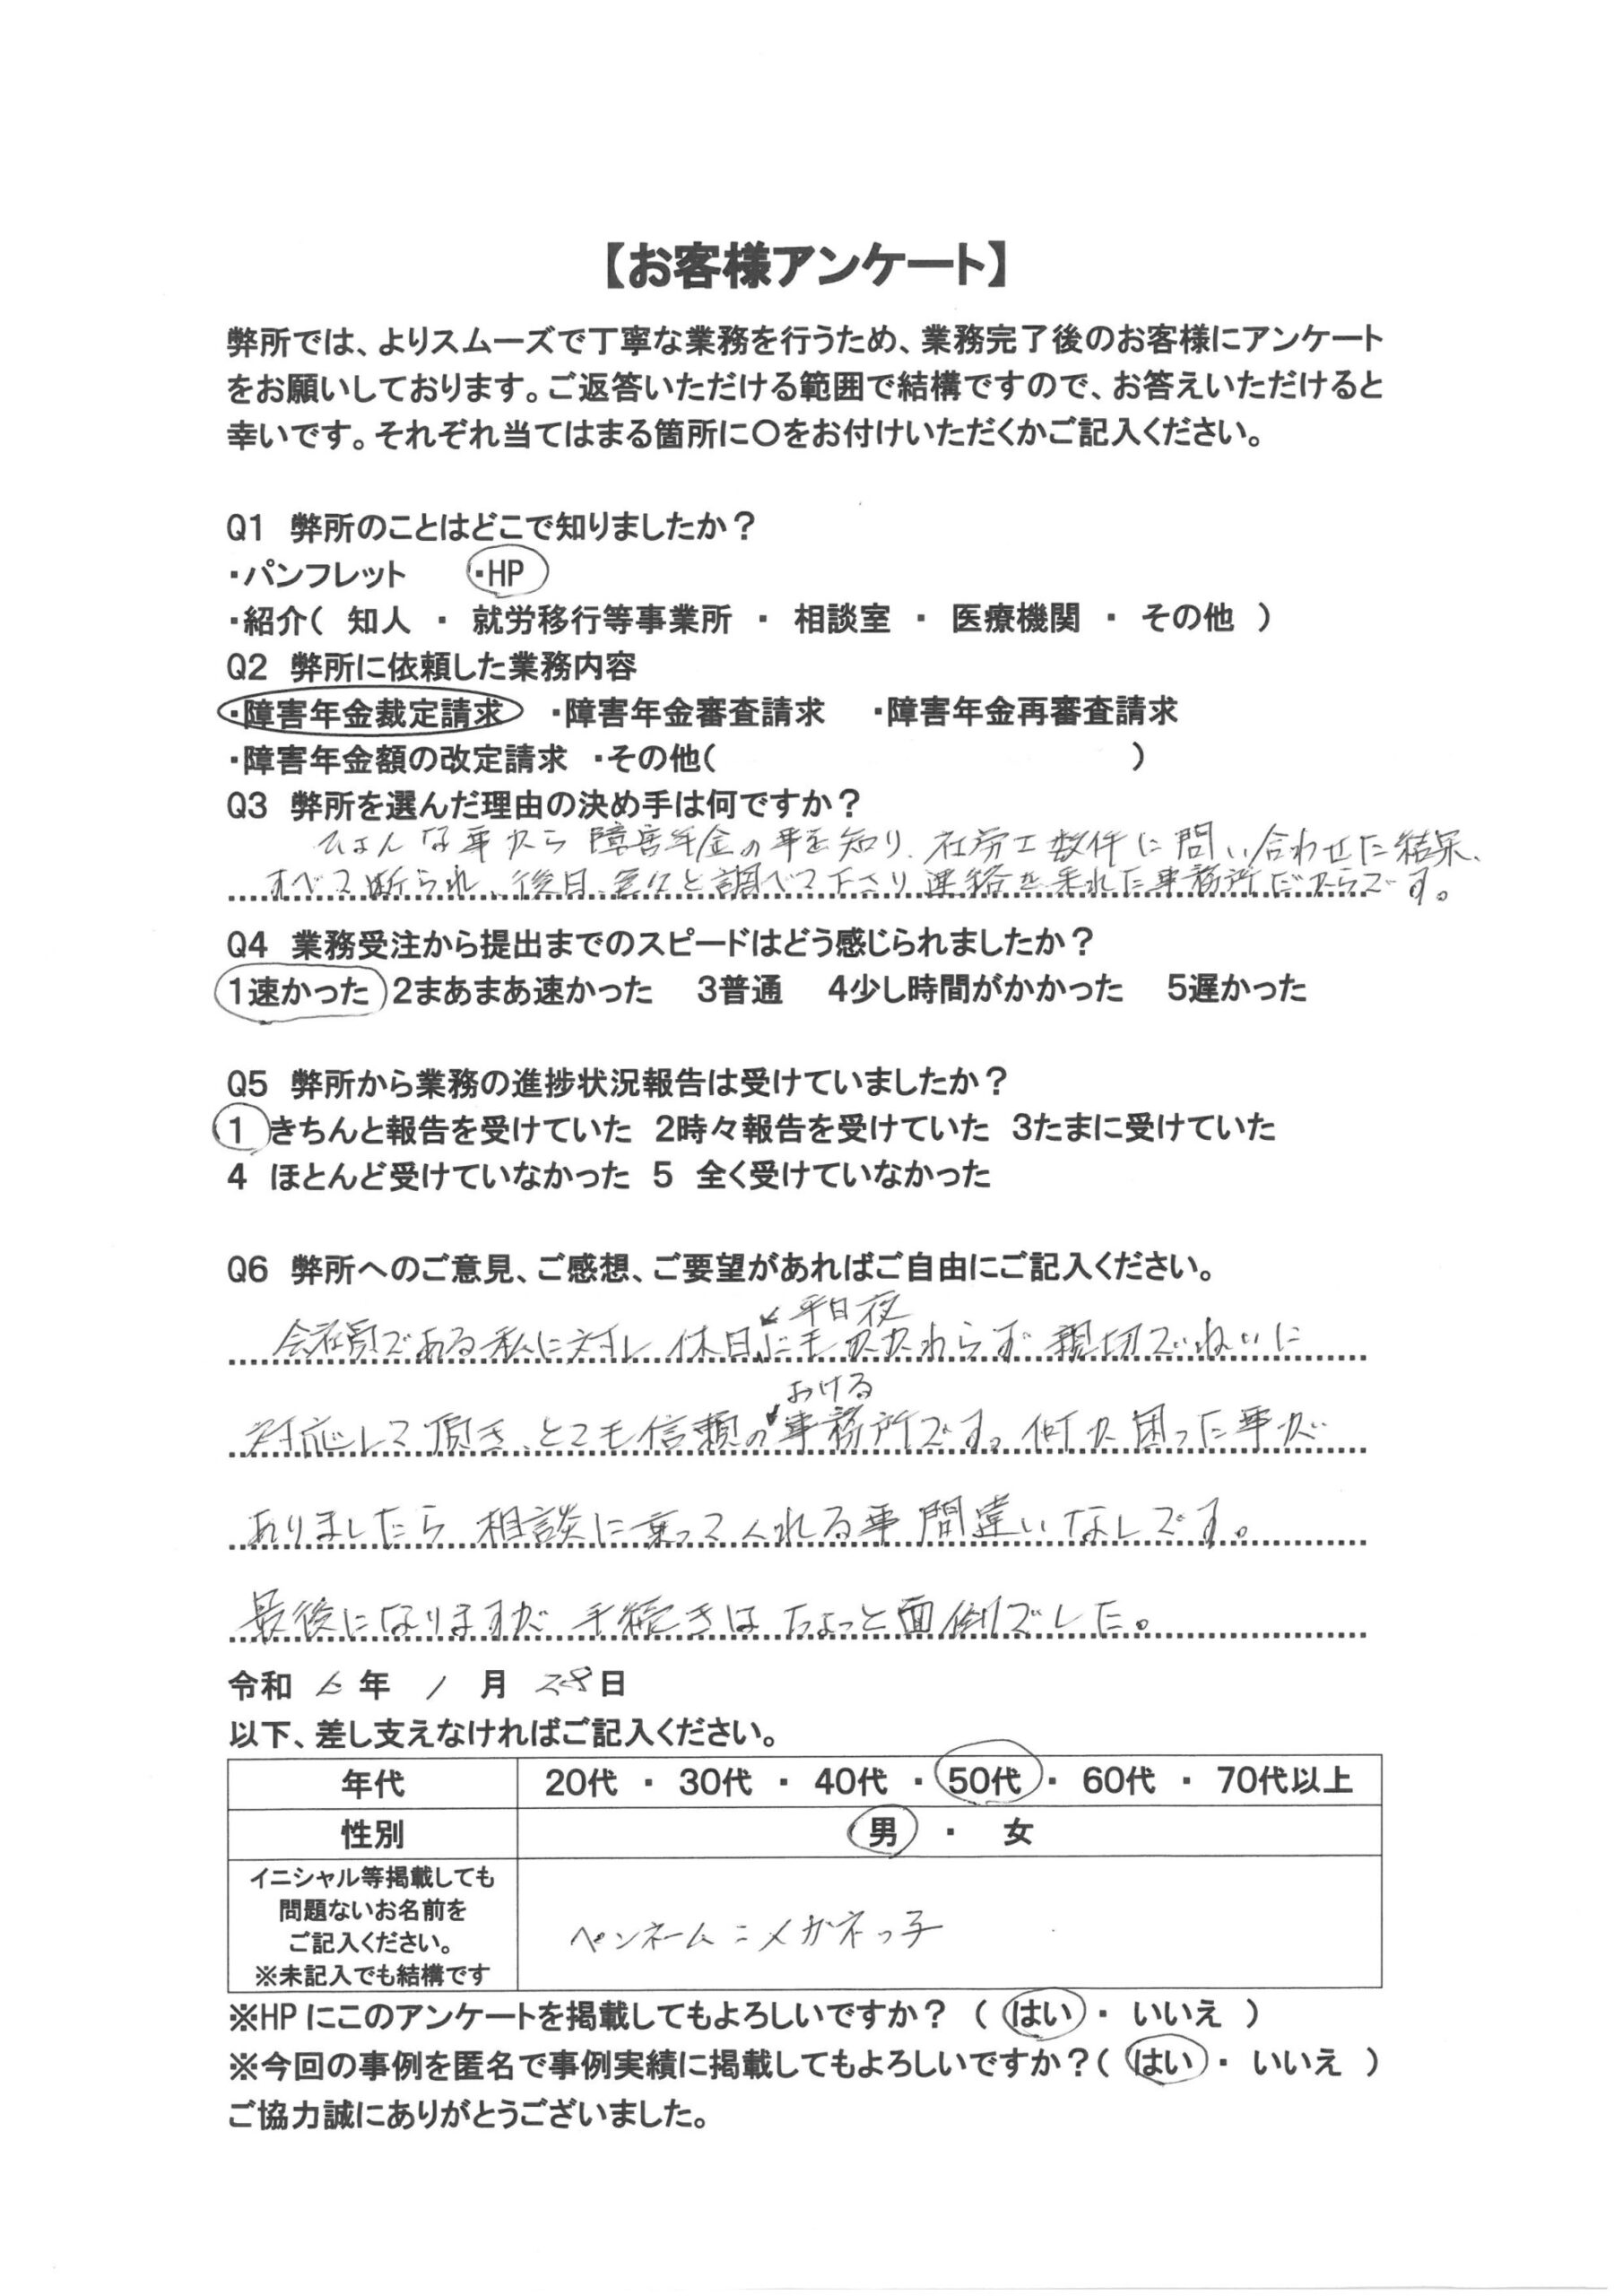 【お客様アンケート】
弊所では、よりスムーズで丁寧な業務を行うため、業務完了後のお客様にアンケート
をお願いしております。ご返答いただける範囲で結構ですので、お答えいただけると
幸いです。それぞれ当てはまる箇所に〇をお付けいただくかご記入ください。
Q1 弊所のことはどこで知りましたか？
・パンフレット ・HP
・紹介( 知人 ・ 就労移行等事業所 ・ 相談室 ・ 医療機関 ・ その他 )
Q2 弊所に依頼した業務内容
・障害年金裁定請求 ・障害年金審査請求 ・障害年金再審査請求
・障害年金額の改定請求 ・その他( )
Q3 弊所を選んだ理由の決め手は何ですか？
ひょんな事から障害年金の事を知り、社労士数件に問い合わせた結果、
すべて断られ、後日、色々と調べて下さり連絡を来れた事務所だからです。
Q4 業務受注から提出までのスピードはどう感じられましたか？
1速かった 2まあまあ速かった 3普通 4少し時間がかかった 5遅かった
Q5 弊所から業務の進捗状況報告は受けていましたか？
1 きちんと報告を受けていた 2時々報告を受けていた 3たまに受けていた
4 ほとんど受けていなかった 5 全く受けていなかった
Q6 弊所へのご意見、ご感想、ご要望があればご自由にご記入ください。
平日夜
会社員である私に対し休日にもかかわらず親切でいねいに
おける
対応して頂き、とても信頼の事務所です。何か困った事が
ありましたら相談に乗ってくれる事間違いなしです。
最後になりますが手続きはちょっと面倒でした。
令和 6 年 1 月 28 日
以下、差し支えなければご記入ください。
年代 20代 ・ 30代 ・ 40代 ・ 50代 ・ 60代 ・ 70代以上
性別 男 ・ 女
イニシャル等掲載しても
問題ないお名前を
ご記入ください。
※未記入でも結構です
ペンネーム：メガネっ子
※HPにこのアンケートを掲載してもよろしいですか？ ( はい ・ いいえ )
※今回の事例を匿名で事例実績に掲載してもよろしいですか？( はい ・ いいえ )
ご協力誠にありがとうございました。